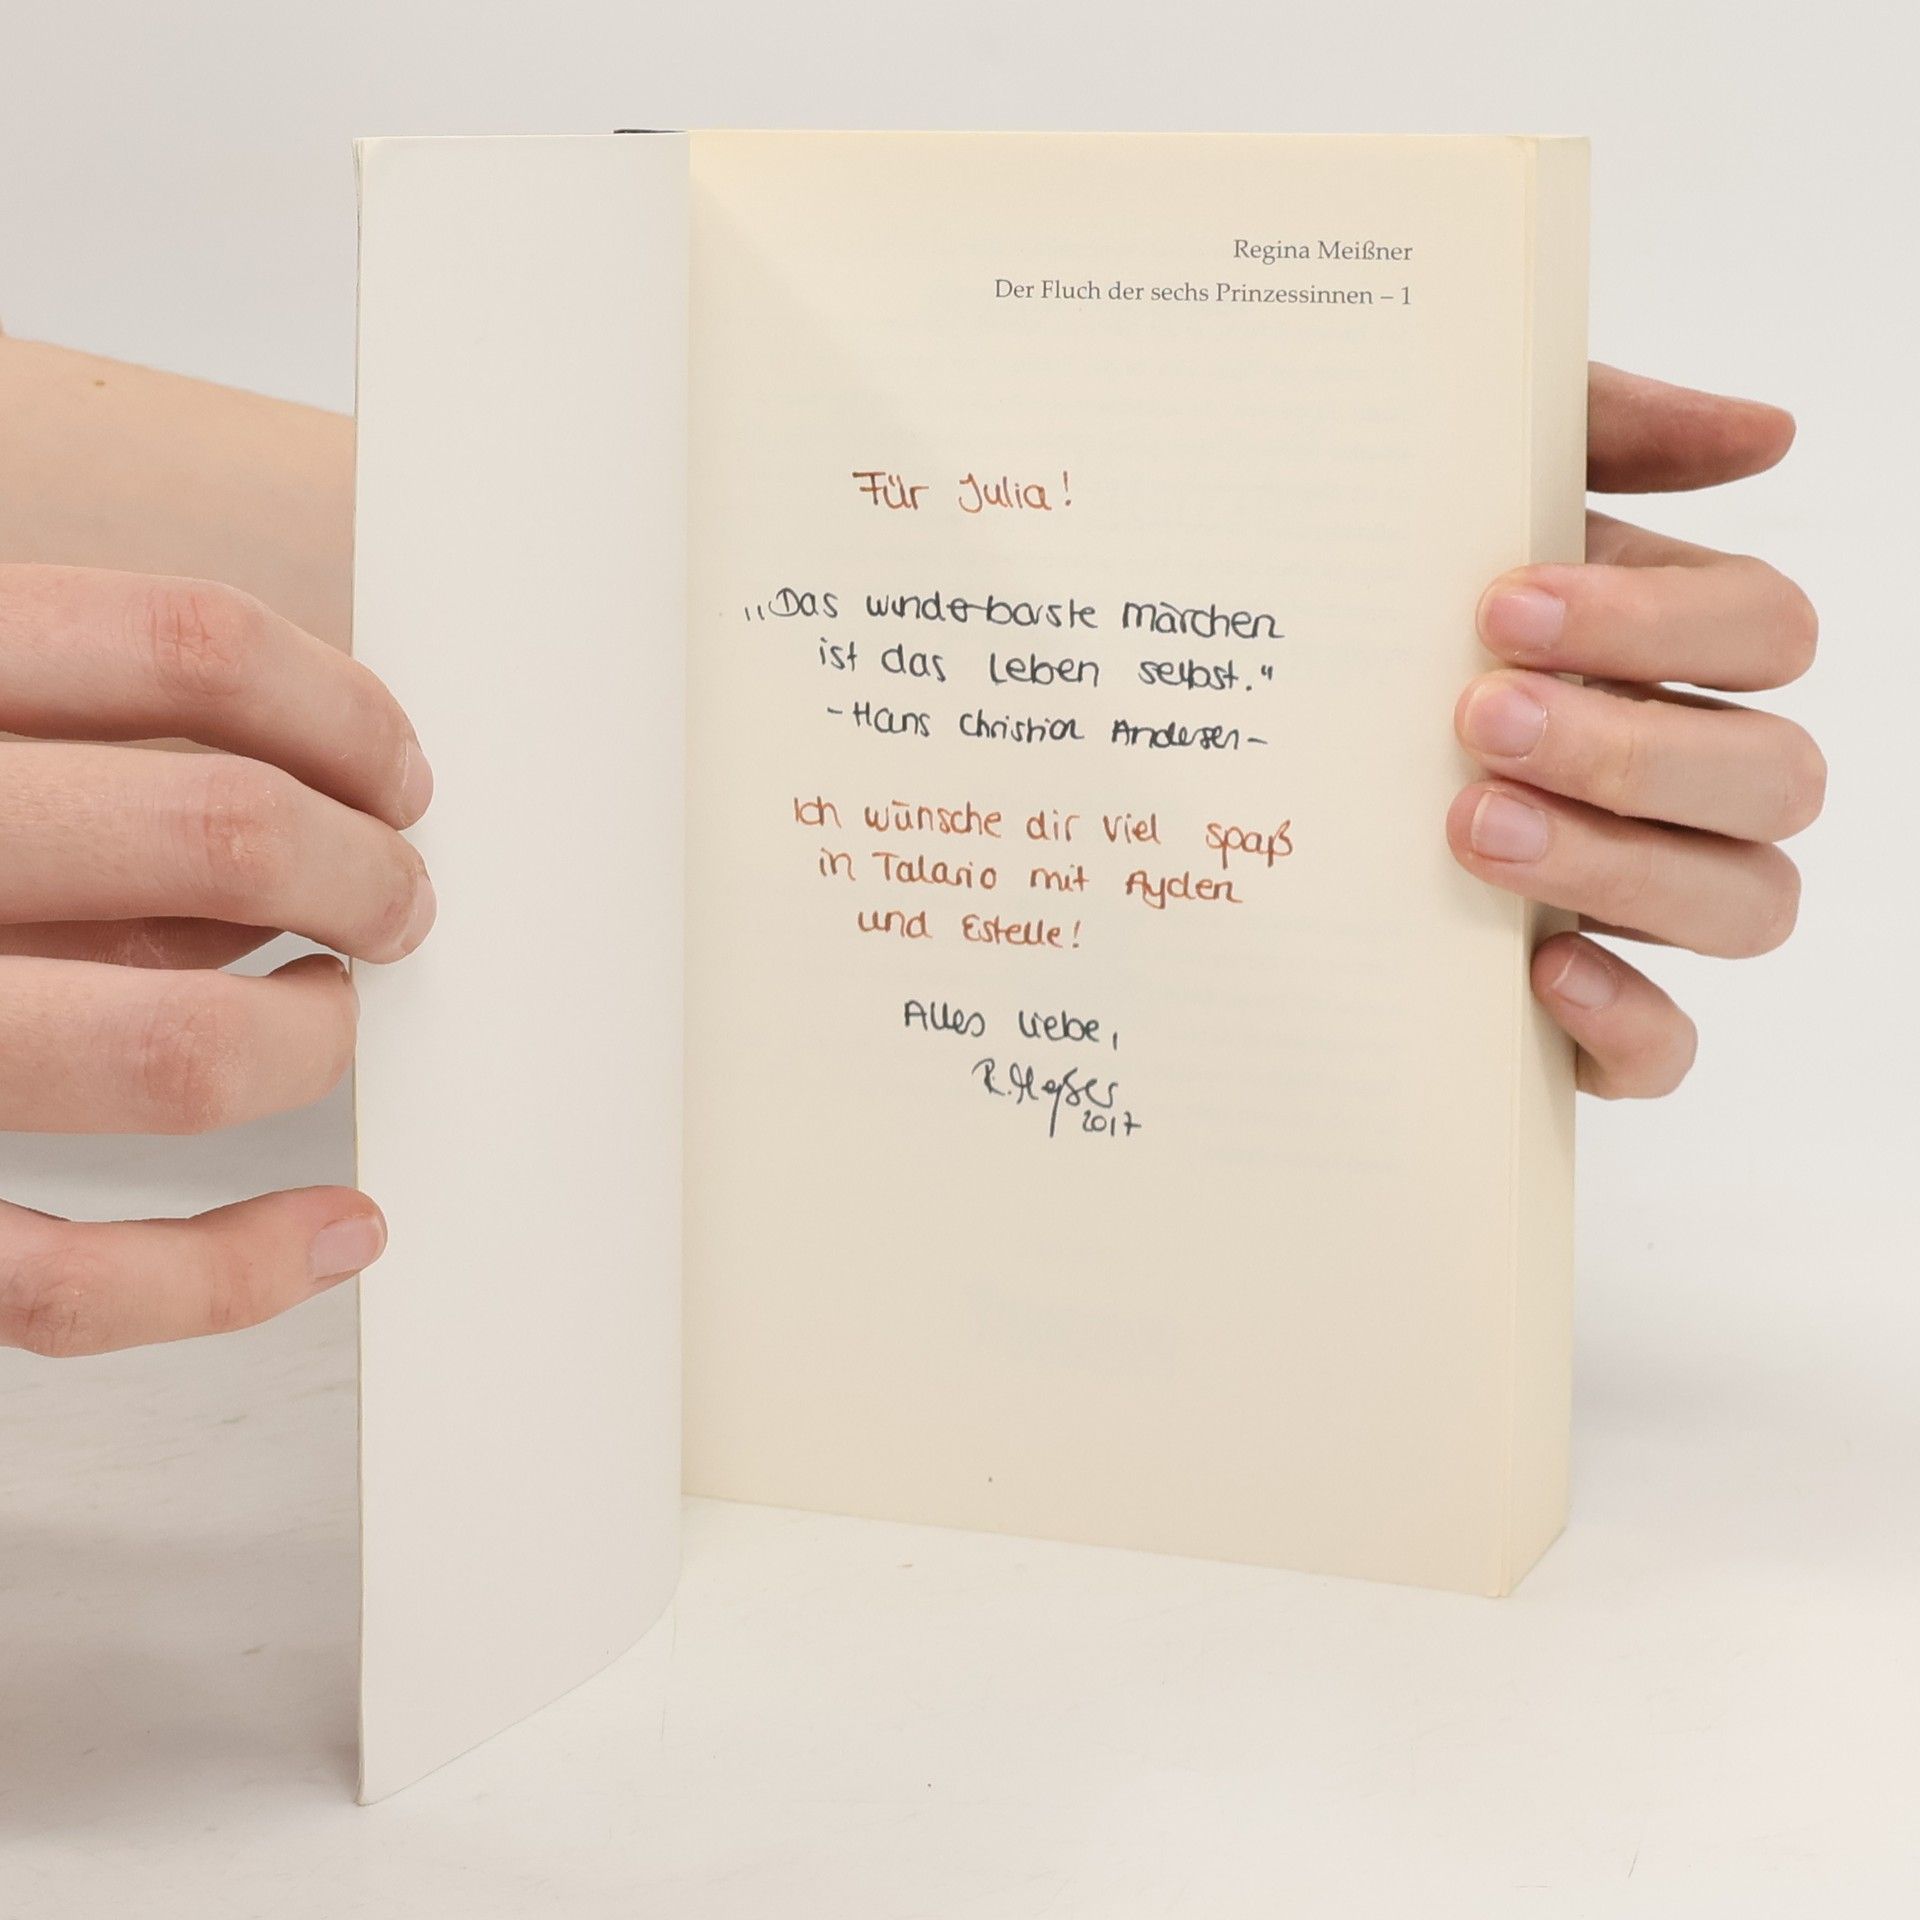 Regina Meißner
Der Fluch der sechs Prinzessinnen – 1
Für Julia!
„Das wunderbarste Märchen
ist das Leben selbst."
- Hans Christian Andersen -
Ich wünsche dir viel Spaß
in Talario mit Ayden
und Estelle!
Alles Liebe,
R. Meißner
2017